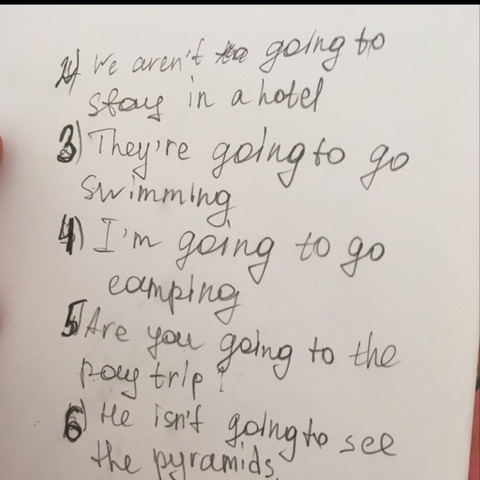 2) We aren't going to
stay in a hotel
3) They're going to go
swimming
4) I'm going to go
camping
5) Are you going to the
trip?
6) He isn't going to see
the pyramids.